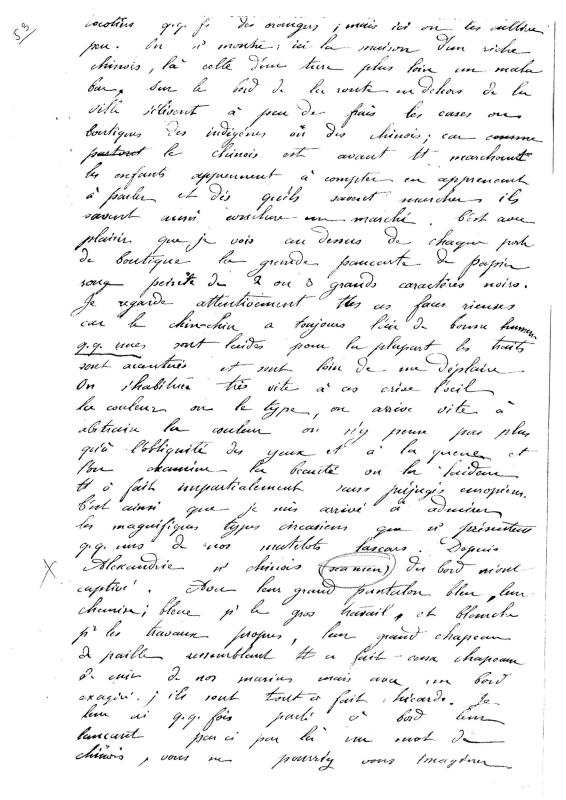 53/
cocotiers q.q. fs des oranges ; mais ici on les cultive
peu. On n' montre : ici la maison d'un riche
chinois, là celle d'un turc plus loin un mala
bar. Sur le bord de la route en dehors de la
ville s'élèvent à peu de frais les cases ou
boutiques des indigènes ou des chinois ; car comme
partout le chinois est avant tt marchand
les enfants apprennent à compter en apprenant
à parler et dès qu'ils savent marcher ils
savent aussi conclure un marché. C'est avec
plaisir que je vois au dessus de chaque porte
de boutique la grande pancarte de papier
rouge peinte de 2 ou 3 grands caractères noirs.
Je regarde attentivement ttes ces faces rieuses
car le chin-chin a toujours l'air de bonne humeur
q.q. unes sont laides pour la plupart les traits
sont accentués et sont loin de me déplaire
On s'habitue très vite à ces crise l'œil
la couleur ou le type, on arrive vite à
abstraire la couleur on n'y pense pas plus
qu'à l'obliquité des yeux et à la queue et
l'on examine la beauté ou la laideur
tt à fait impartialement sans préjugés européens.
C'est ainsi que je suis arrivé à admirer
les magnifiques types circasiens que n' présentent
q.q. uns de nos matelots lascars. Depuis
X Alexandrie n' chinois (seamen) du bord m'ont
captivé. Avec leur grand pantalon bleu, leur
chemise ; bleue pr le gros travail, et blanche
pr les travaux propres, leur grand chapeau
de paille ressemblant tt à fait aux chapeaux
de cuir de nos marins mais avec un bord
exagéré ; ils sont tout à fait chicards. Je
leur ai q.q. fois parlé à bord leur
lançant par ci par là un mot de
chinois, vous ne pouvez vous imaginer